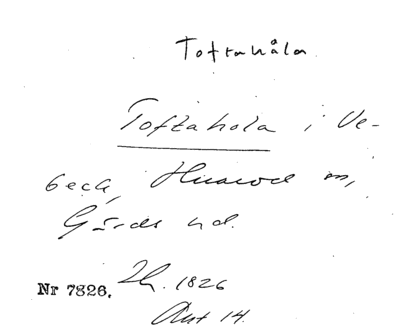 Toftahåla
Toftahola i Ve-
beck, Huarod sn,
Gärds hd.
Nr 7826. Lh. 1826
Aut 14.